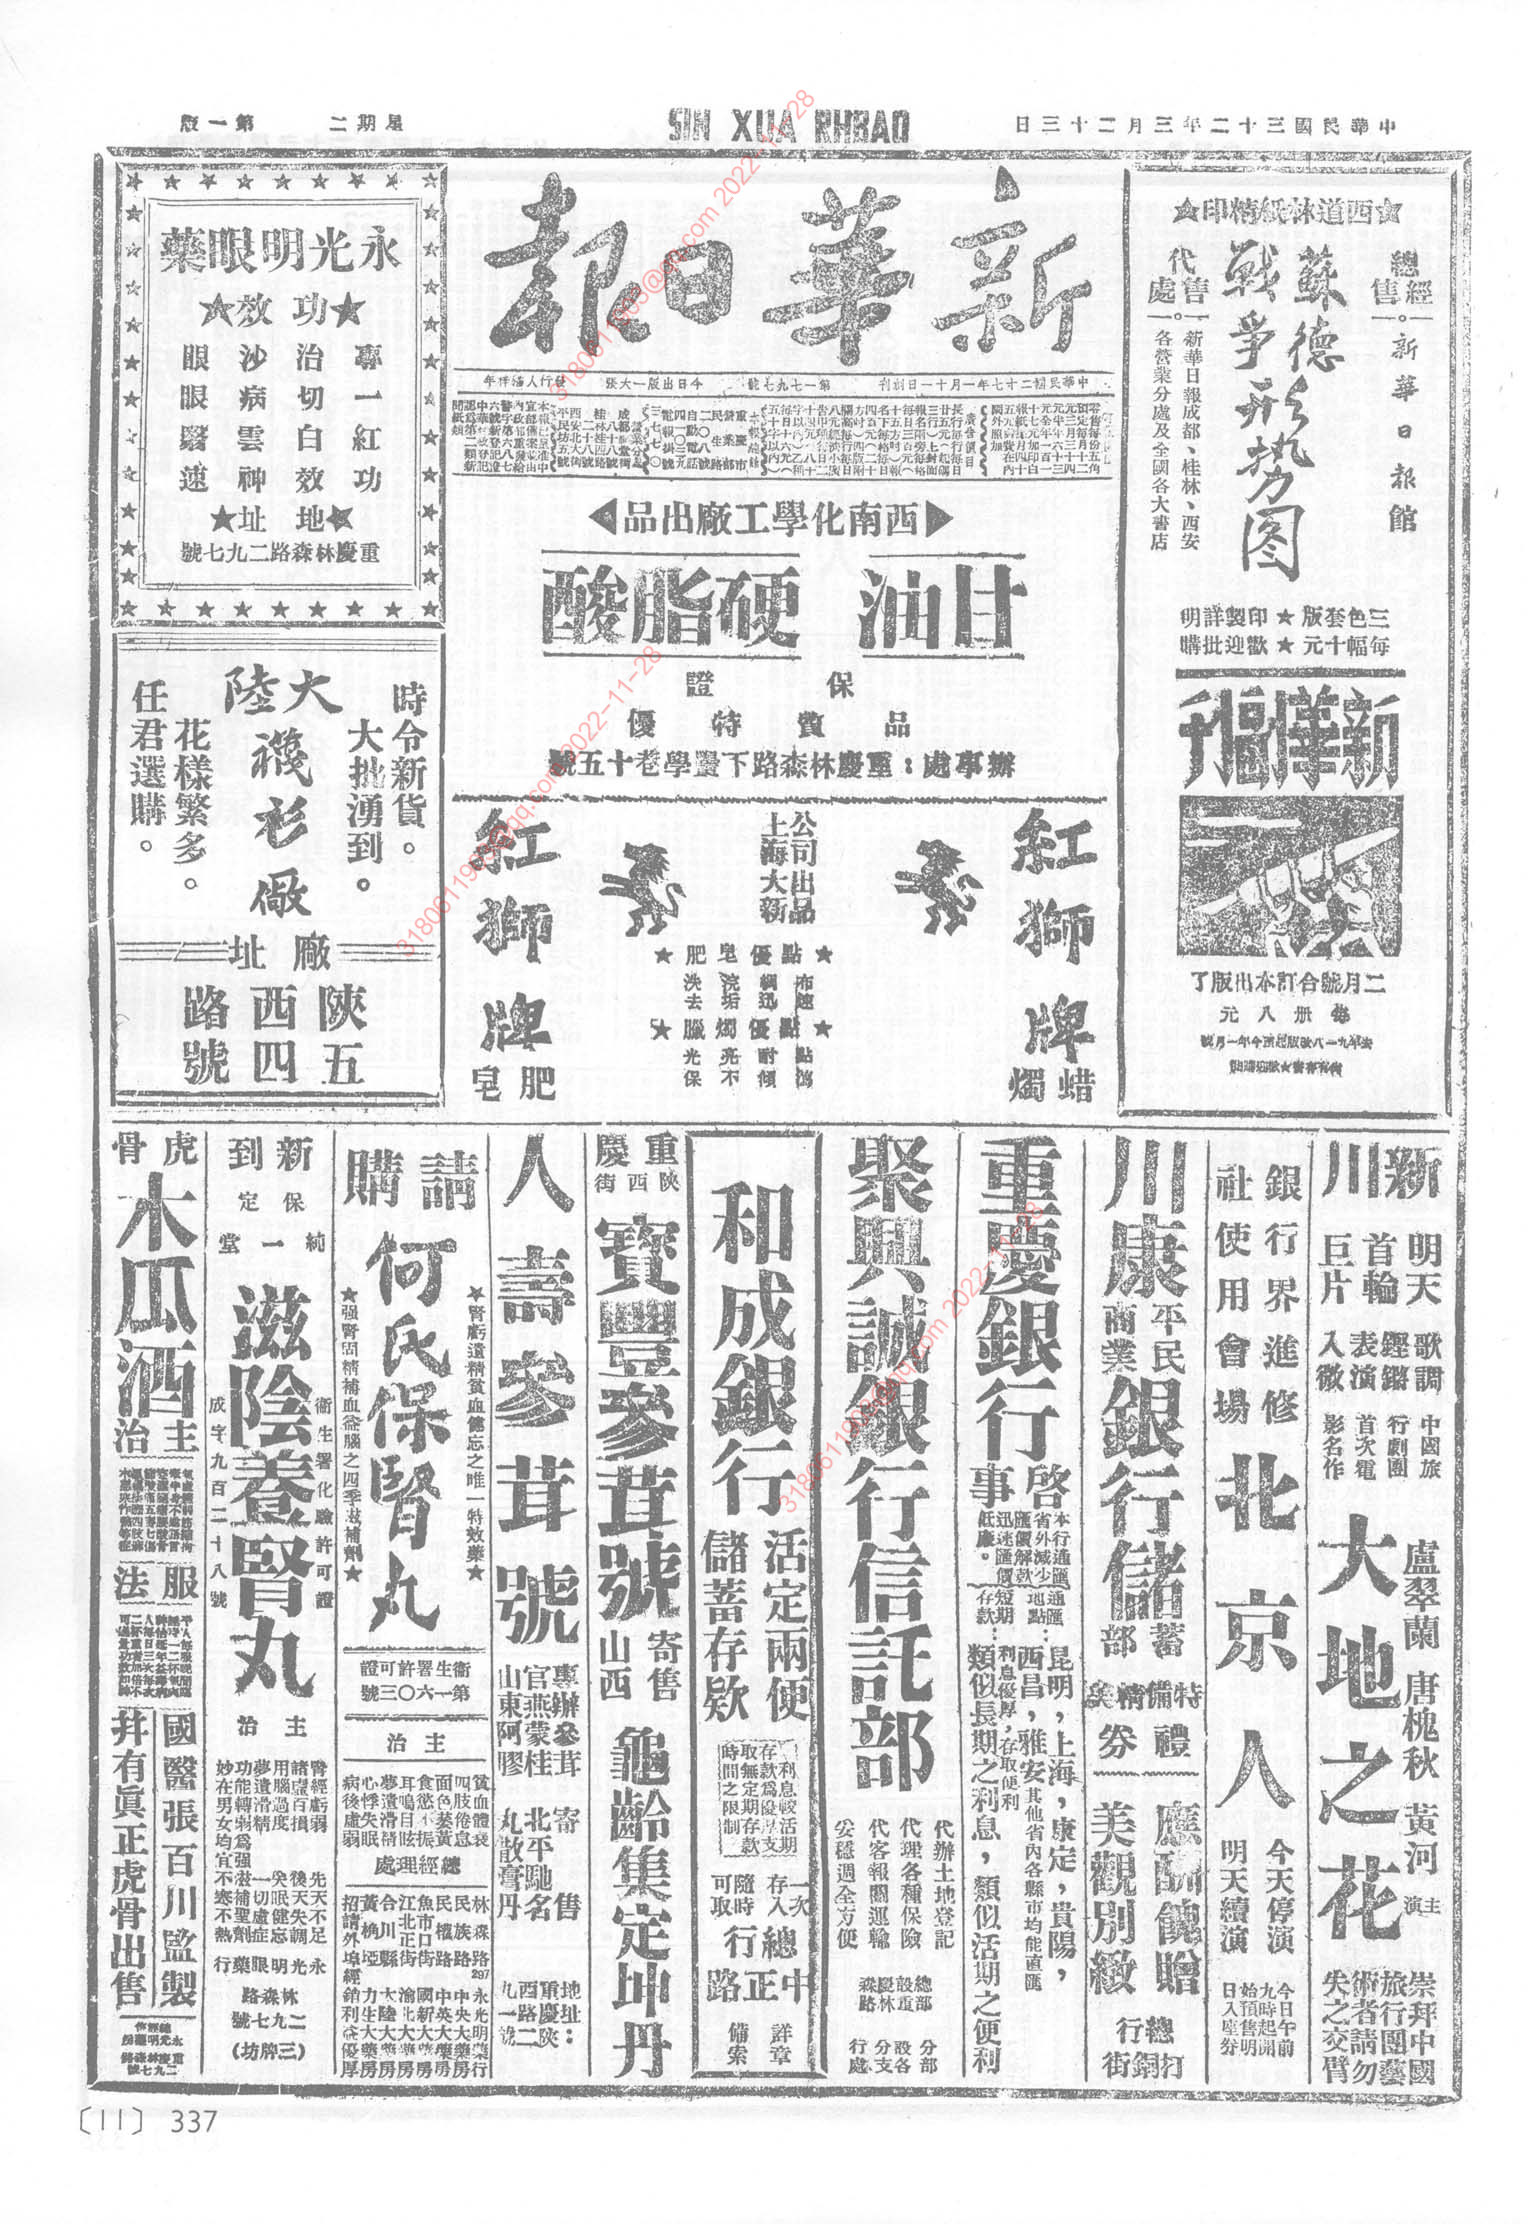 中華民國三十二年三月二十三日
SIN XUA RHBAO
星期二　第一版
新華日報
中華民國二十七年一月十一日創刊
第一七九七號
今日出版一大張
發行人潘梓年
★西道林紙精印★
蘇德
戰爭形勢图
總經售。新華日報館
代售處。新華日報成都、桂林、西安
各營業分處及全國各大書店
三色套版★印製詳明
每幅十元★歡迎批購
新華副刊
二月號合訂本出版了
每册八元
▶西南化學工廠出品◀
甘油　硬脂酸
保證
品質特優
辦事處：重慶林森路下豐學巷十五號
紅獅牌
蜡燭
公司出品
上海大新
★肥皂優點★
★臘燭優點★
紅獅牌
肥皂
永光明眼藥
★功效★
專治沙眼
一切病眼
紅白雲翳
功效神速
★地址★
重慶林森路二九七號
大陸
襪衫厰
時令新貨。
大批湧到。
花樣繁多。
任君選購。
廠址
陝西路
五四號
新川
明天
首輪
巨片
歌調鏗鏘
表演入微
中國旅
行劇團
首次電
影名作
大地之花
盧翠蘭　唐槐秋　黃河　主演
崇拜中國
旅行團藝
術者請勿
失之交臂
銀行界進修
社使用會場
北京人
今天停演
明天續演
今日午前
九時起開
始預售明
日入座券
川康
平民
商業
銀行儲蓄部
特備精美
禮券
應酬餽贈
美觀別緻
總行
打銅街
重慶銀行
啓事
本行通匯
省外減少
匯價解款
迅速匯價
低廉。
通匯
地點：
昆明，上海，康定，貴陽，
西昌，雅安其他省內各縣市均能直匯
短期
存款：
利息優厚，存取便利
類似長期之利息，類似活期之便利
聚興誠銀行信託部
代辦土地登記
代理各種保險
代客報關運輸
妥穩週全方便
總部
設重
慶林
森路
分部
設各
分支
行處
和成銀行
活定兩便
儲蓄存欵
利息較活期
存款爲優，支
取無定期存款
時間之限制
一次
存入
隨時
可取
總行
中正路
詳章
備索
重慶
陝西街
寶豐參茸號
寄售
山西
龜齡集定坤丹
人壽參茸號
專辦參茸
官燕蒙桂
山東阿膠
寄售
北平馳名
丸散膏丹
地址：
重慶陝
西路二
九一號
請購
何氏保腎丸
★腎虧遺精貧血健忘之唯一特效藥★
★强腎固精補血益腦之四季滋補劑★
衛生署許可證
第一六〇三號
主治
貧血體衰
四肢倦怠
面色萎黃
食慾不振
耳鳴目眩
夢遺滑精
心悸失眠
病後虛弱
總經理處
林森路297永光明藥行
民族路　中央大藥房
民權路　中英大藥房
魚市口街　國新大藥房
江北正街　渝北大藥房
合川縣　大陸大藥房
黃桷埡　力生大藥房
招請外埠經銷利益優厚
新到
保定
純一堂
滋陰養腎丸
衛生署化驗許可證
成字九百二十八號
主治
腎經虧弱　先天不足
諸虛百損　後天失調
用腦過度　失眠健忘
夢遺滑精　一切虛症
功能轉弱爲强滋補聖劑
妙在男女均宜不寒不熱
永光明眼藥行
林森路
二九七號
(三牌坊)
虎骨
木瓜酒
主治
服法
國醫張百川監製
并有眞正虎骨出售
重慶林森路
二九七號
〔11〕 337
3180611903@qq.com 2022-11-28
3180611903@qq.com 2022-11-28
3180611903@qq.com 2022-11-28